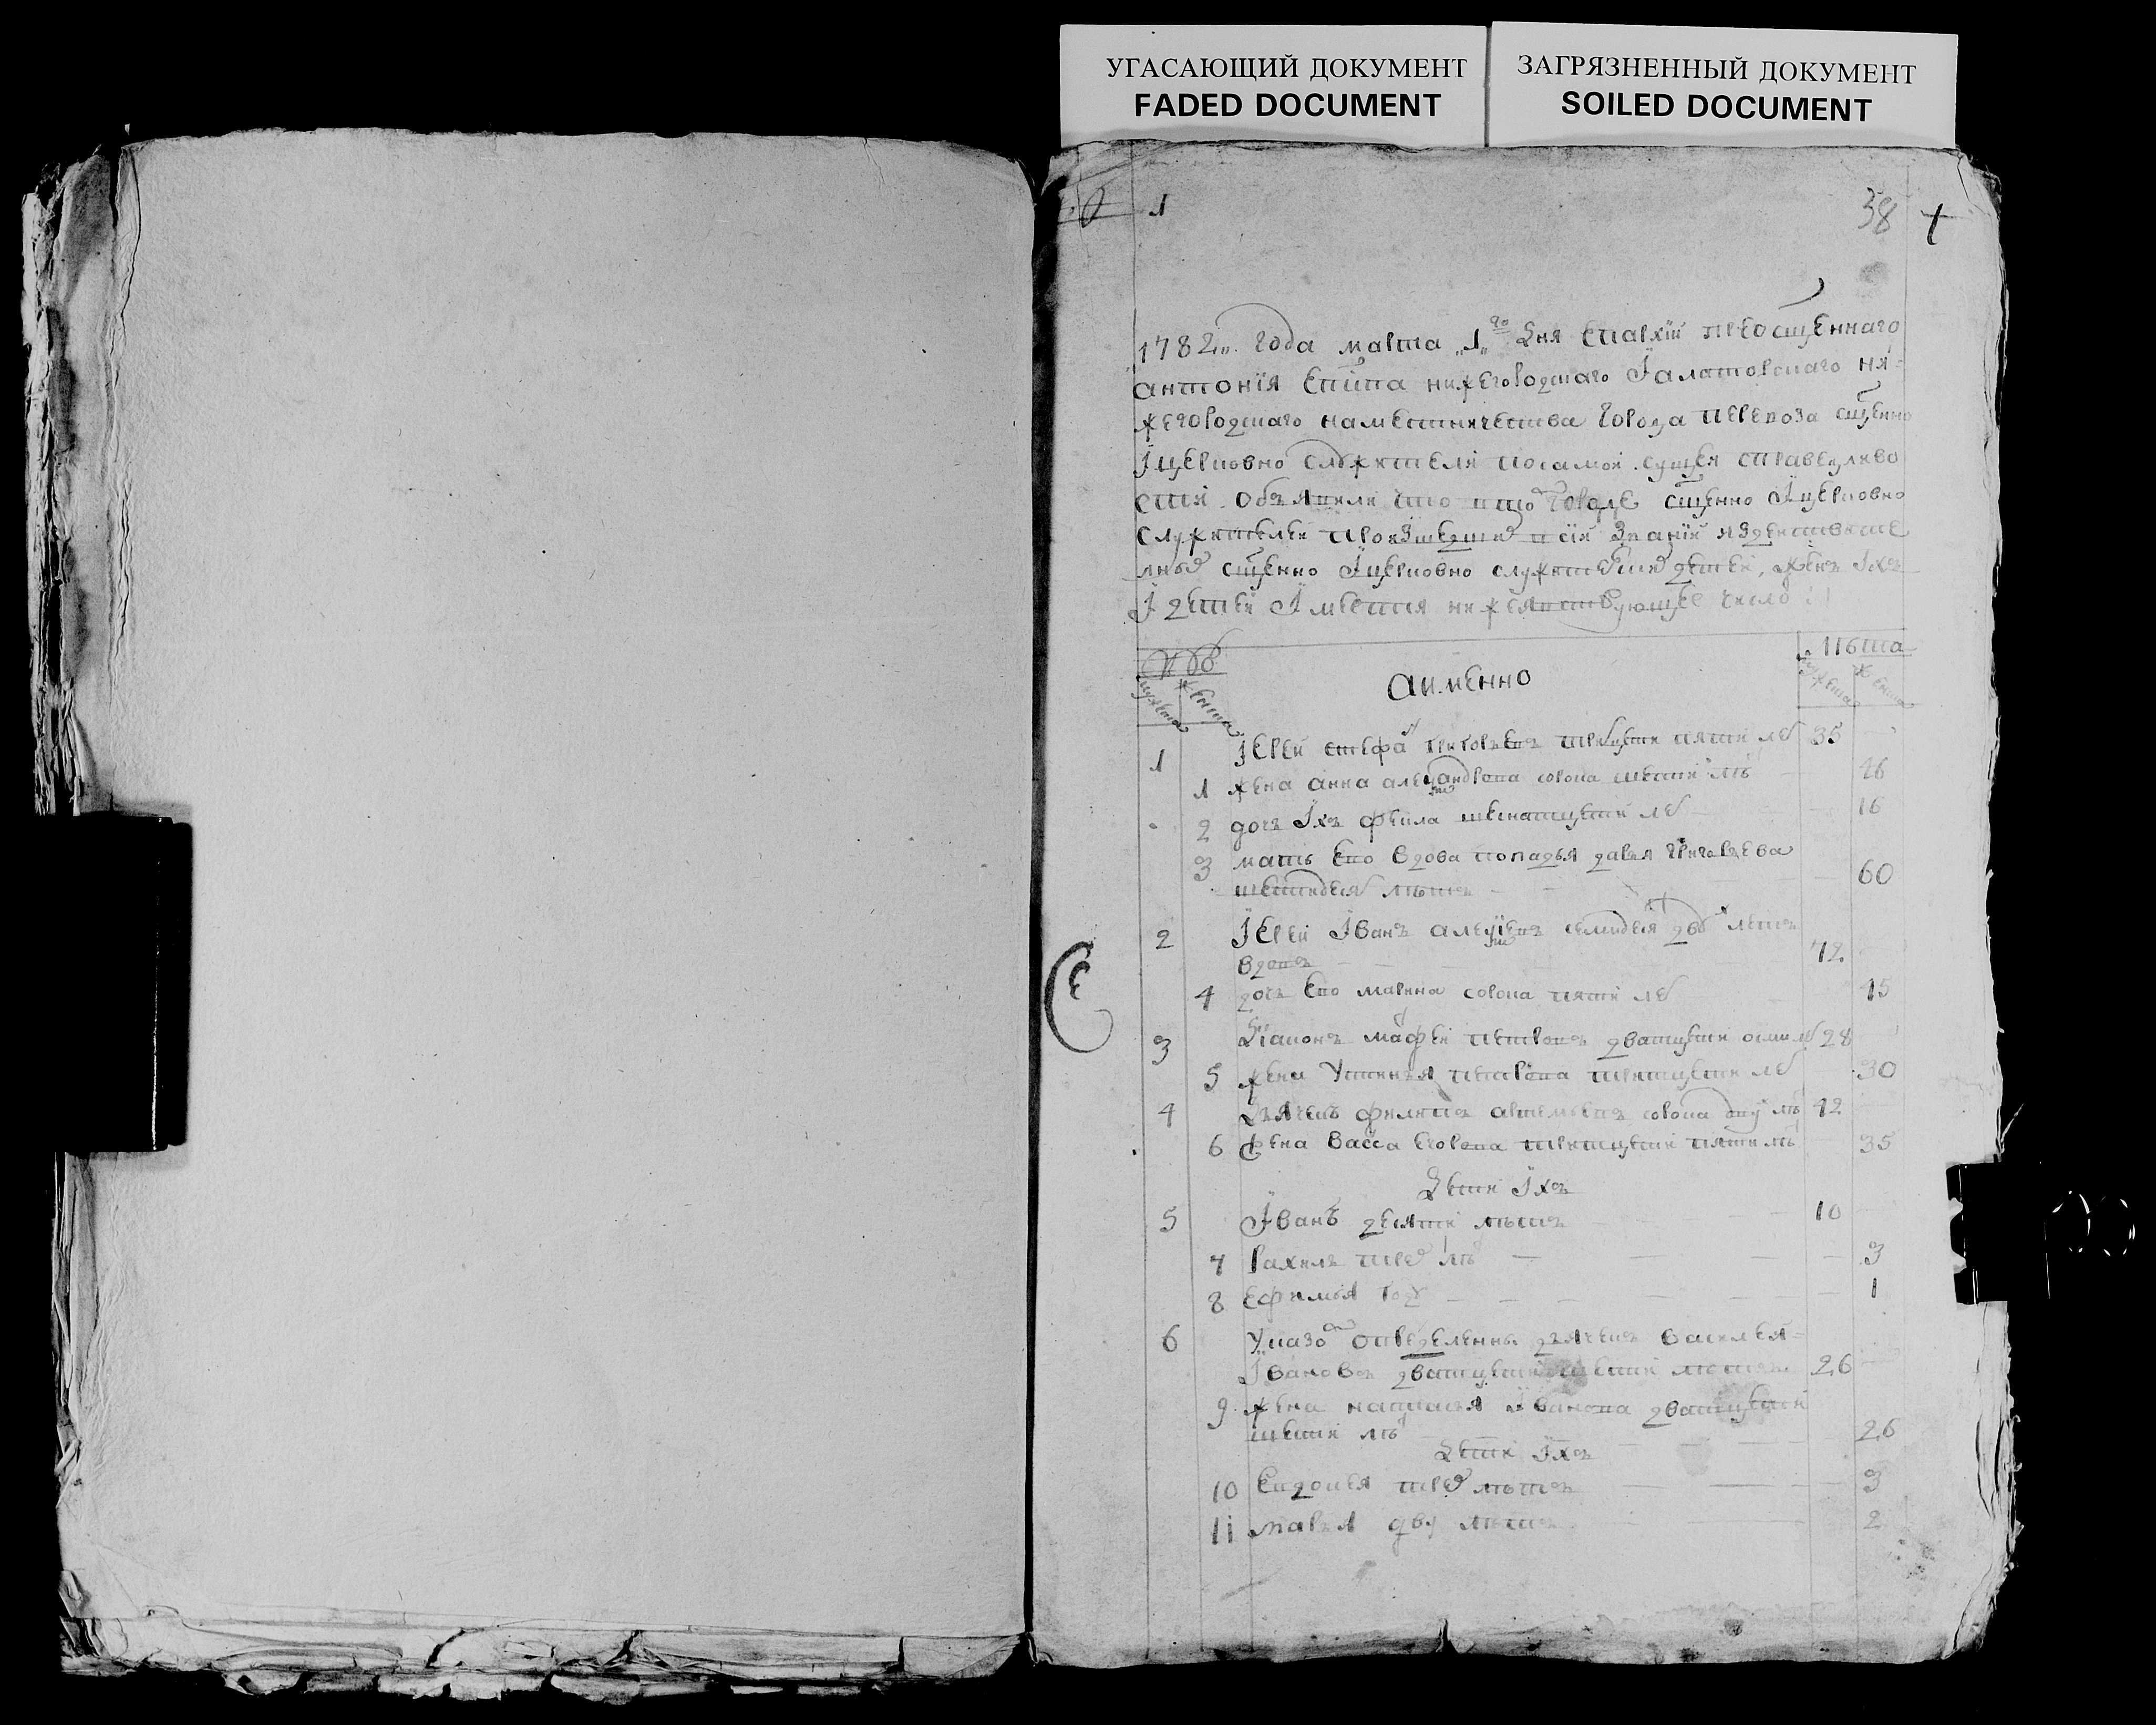 УГАСАЮЩИЙ ДОКУМЕНТ
FADED DOCUMENT
ЗАГРЯЗНЕННЫЙ ДОКУМЕНТ
SOILED DOCUMENT
1
38
1782 года марта 1го дня епархїи преосщеннаго
антонїя епйпа нижегородскаго Ïалаторскаго ни=
жегородскаго наместничества города перевоза сщенно
Ïцерковно служители посамой сущей справедливо
сти объявили что втом городе сщенно Ïцерковно
служителей произшедших всїи званїи издействите
лных сщенно Ïцерковно служителских детей, жен Ïхъ
Ïдетей Ïмеется нижеявствующее число
№
мужеска
женска
аименно
лѣта
мужеска
женска
1 Ïерей стефан григорьевъ тритцети пяти лет 35
1 жена анна александрова сорока шести лѣт 46
2 дочь Ïхъ фекла шеснатцети лет 16
3 мать ево вдова попадья дарья григорьева
шестидесят лѣтъ 60
2 Ïерей Ïванъ алексїевъ семидесят двух летъ
вдовъ 72
4 дочь ево марина сорока пяти лет 45
3 дїаконъ мафей петровъ дватцети осми лет 28
5 жена устинья петрова тритцети лет 30
4 дьячекъ филипъ артемьевъ сорока двух лѣт 42
6 жена васса егорова тритцети пяти лѣт 35
дети Ïхъ
5 Ïванъ десяти лѣтъ 10
7 рахиль трех лѣт 3
8 ефимья году 1
6 указом определенны дьячекъ василей
Ïвановъ дватцети шести лѣтъ 26
9 жена наталья Ïванова дватцети
шести лѣт 26
дети Ïхъ
10 евдокея трех лѣтъ 3
11 марья дву лѣтъ 2